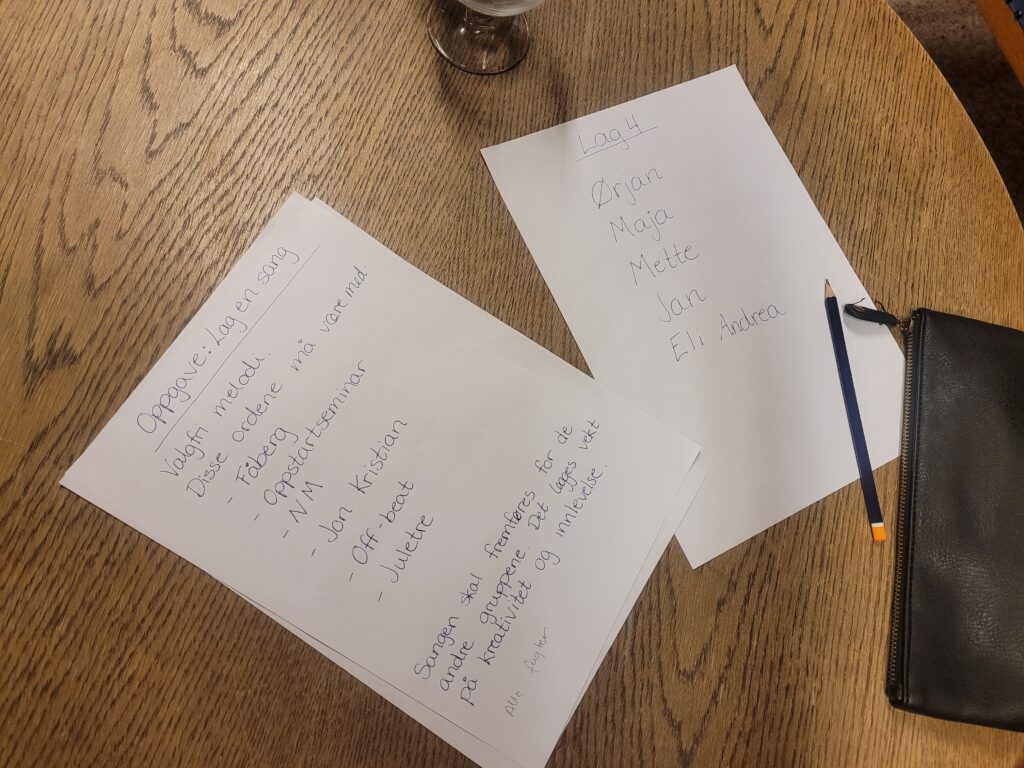 Oppgave: Lag en sang
Valgfri melodi.
Disse ordene må være med.
- Fåberg
- Oppstartsseminar
- NM
- Jon Kristian
- Off-beat
- Juletre
Sangen skal fremføres for de
andre gruppene. Det legges vekt
på kreativitet og innlevelse.
Alle fugler
Lag 4
Ørjan
Maja
Mette
Jan
Eli Andrea